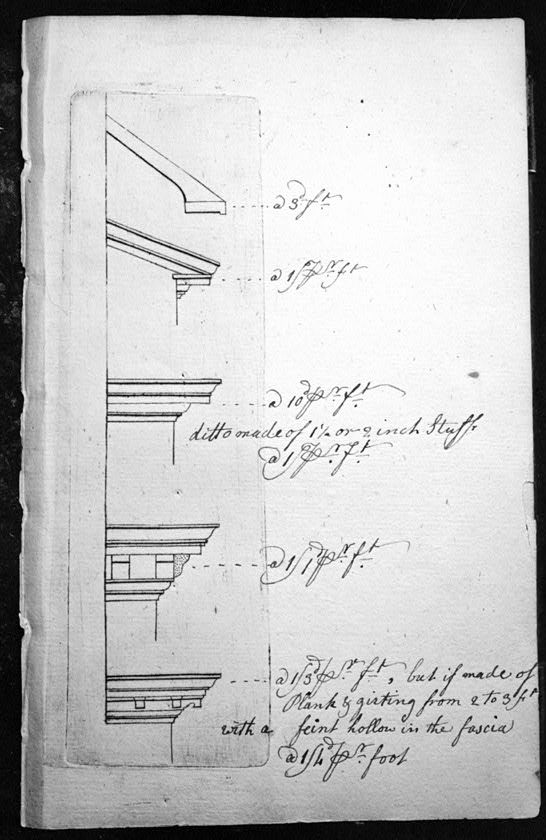 a 3d ft
a 1/ pr ft
a 10d pr ft
ditto made of 1½ or 2 inch Stuff
a 1/ pr ft
a 1/1d pr ft
a 1/3d pr ft, but if made of
Plank & girting from 2 to 3 ft
with a feint hollow in the fascia
a 1/4d pr foot